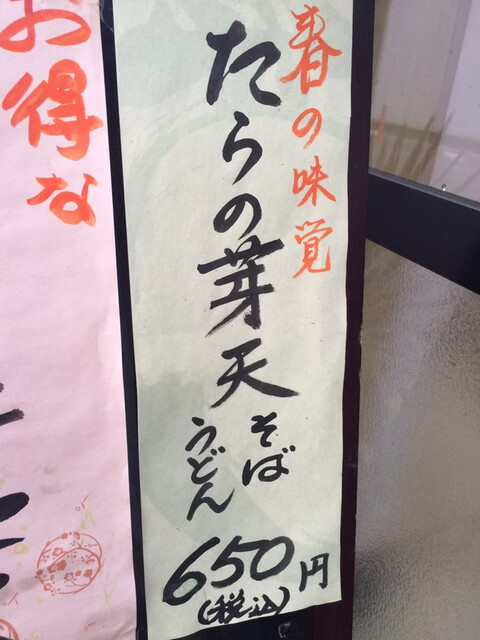 春の味覚
たらの芽天
そば
うどん
650円
(税込)
お得な